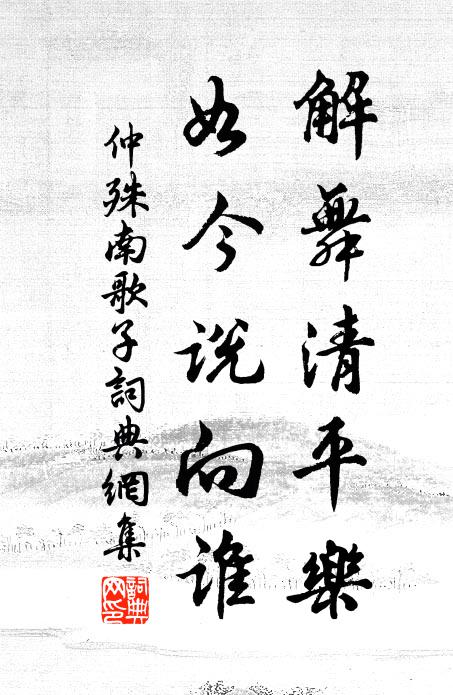 解舞清平樂
如今説向誰
仲殊南歌子詞典網集
詞典
网印